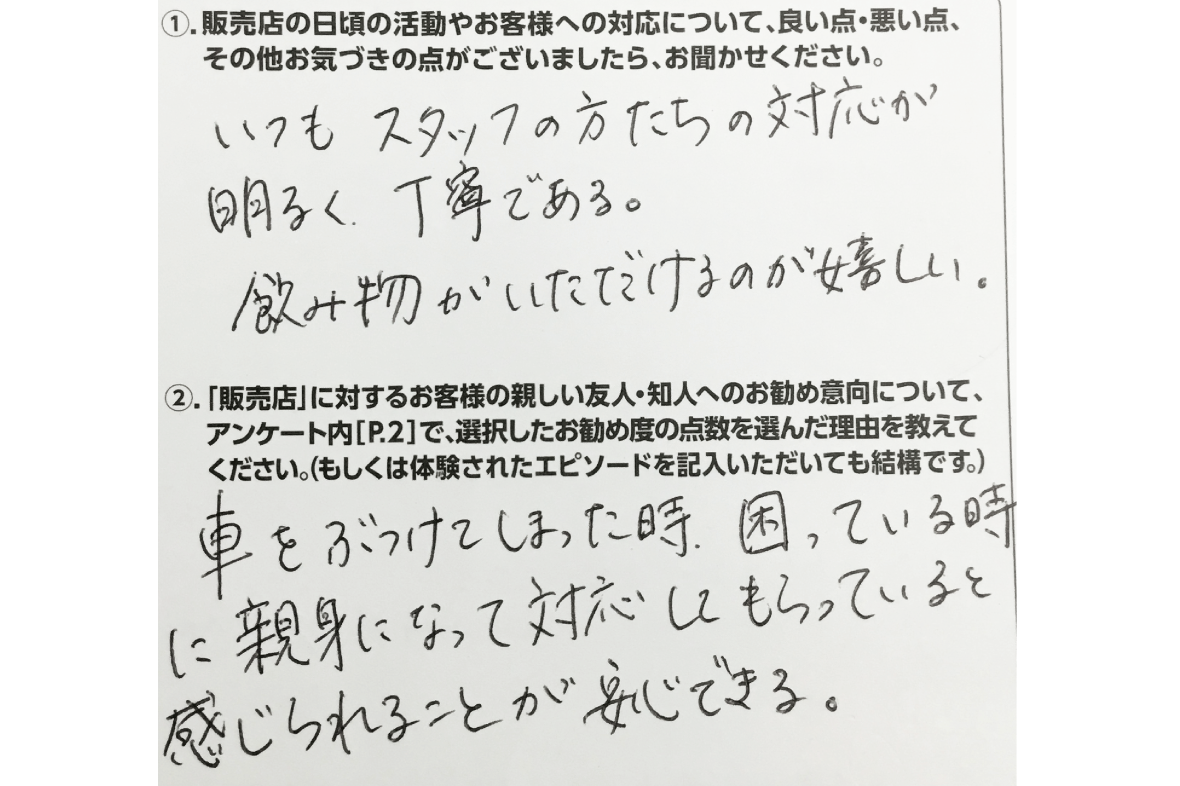 ①.販売店の日頃の活動やお客様への対応について、良い点・悪い点、
その他お気づきの点がございましたら、お聞かせください。
いつも スタッフの方たちの対応が
明るく、丁寧である。
飲み物がいただけるのが嬉しい。
②.「販売店」に対するお客様の親しい友人・知人へのお勧め意向について、
アンケート内[P.2]で、選択したお勧め度の点数を選んだ理由を教えて
ください。(もしくは体験されたエピソードを記入いただいても結構です。)
車をぶつけてしまった時、困っている時
に親身になって対応してもらっていると
感じられることが安心できる。